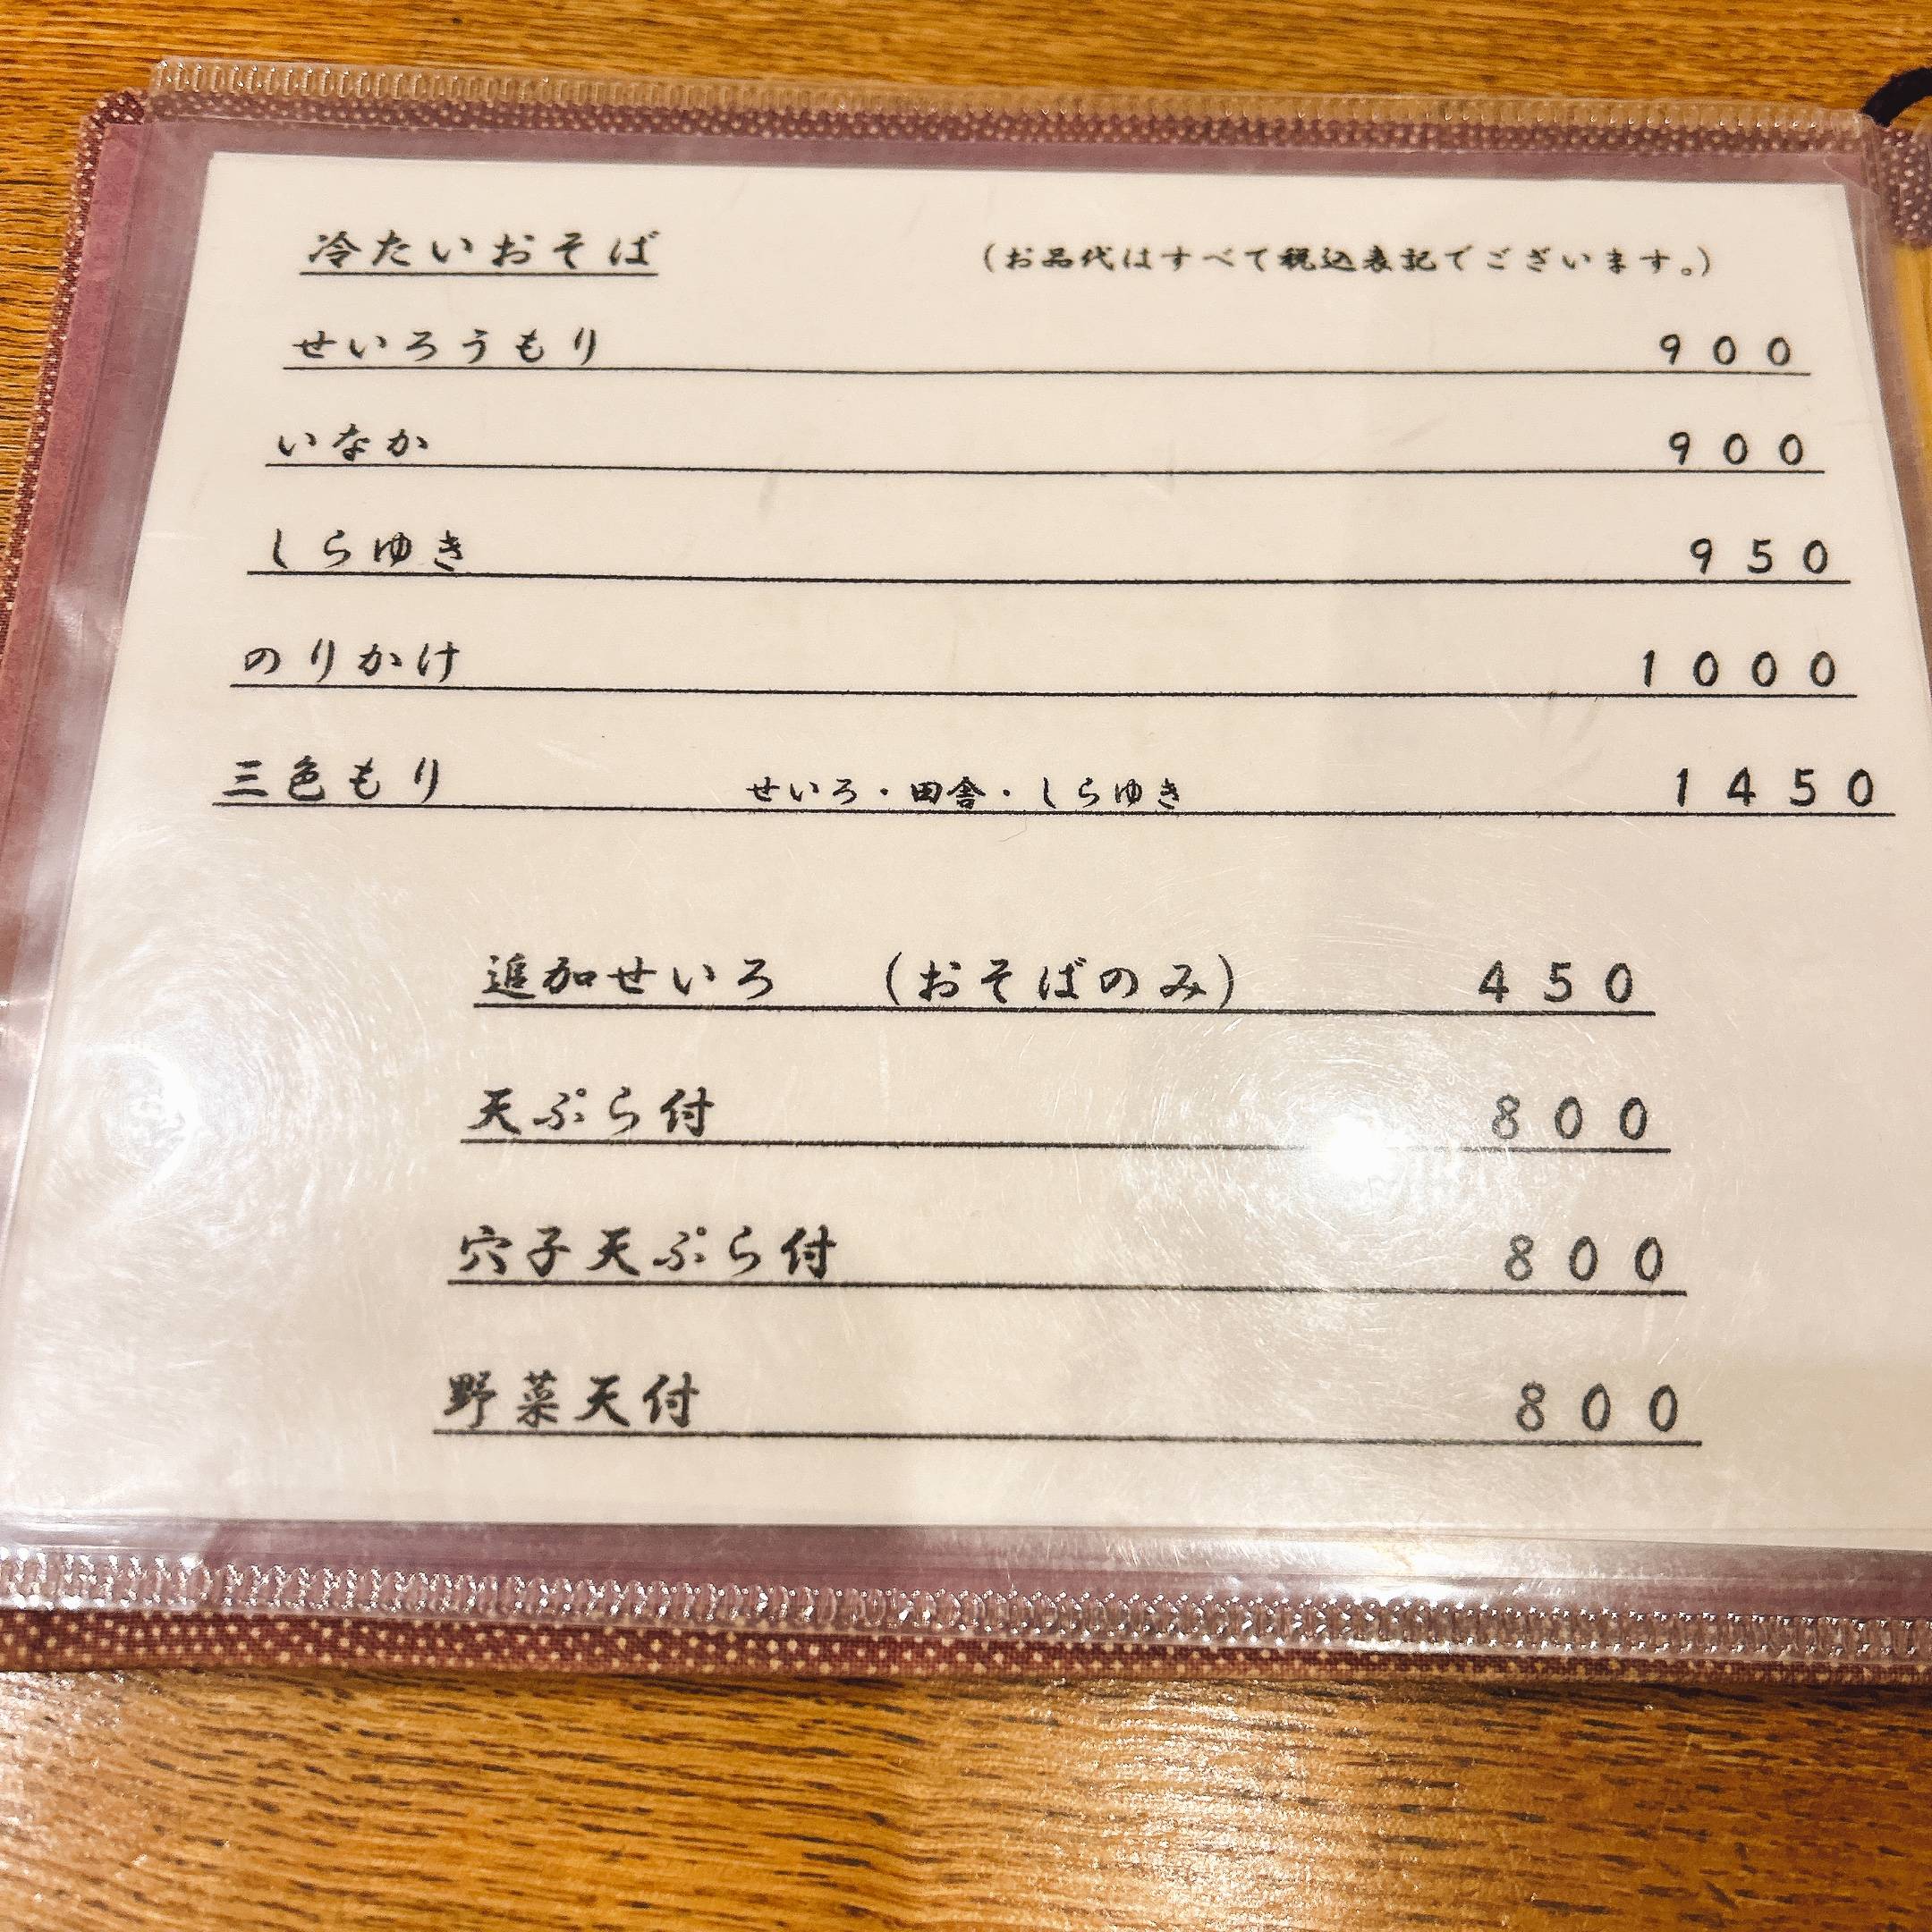 冷たいおそば　（お品代はすべて税込表記でございます。）
せいろうもり　９００
いなか　９００
しらゆき　９５０
のりかけ　１０００
三色もり　せいろ・田舎・しらゆき　１４５０
追加せいろ　（おそばのみ）　４５０
天ぷら付　８００
穴子天ぷら付　８００
野菜天付　８００